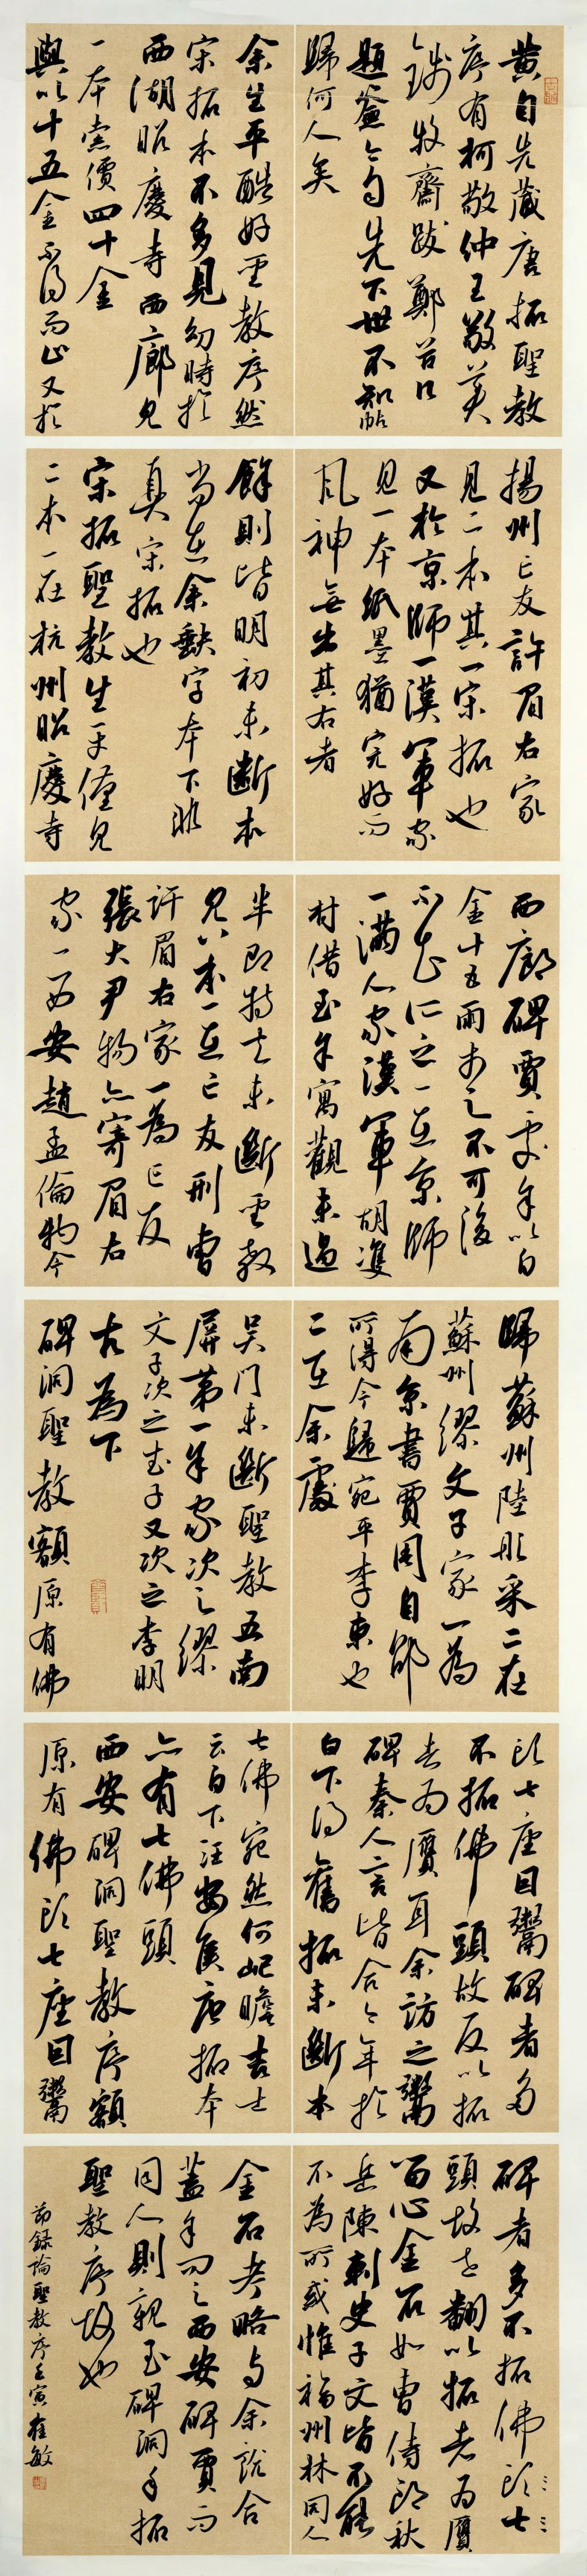 黃自先藏唐拓聖教
序有柯敬仲王敬美
錢牧齋跋鄭谷口
題簽今自先下世不知帖
歸何人矣
余生平酷好聖教序然
宋拓本不多見幼時於
西湖昭慶寺西廊見
一本索價四十金
與以十五金不得而止又於
揚州亡友許眉右家
見二本其一宋拓也
又於京師一漢軍家
見一本紙墨猶完好而
風神無出其右者
餘則皆明初未斷本
當在余缺字本下非
真宋拓也
宋拓聖教生平僅見
二本一在杭州昭慶寺
西廊碑賈索余以白
金十五兩市之不可後
不知所之一在京師
一滿人家漢軍胡雙
村借至余寓觀未過
半即持去未斷聖教
見八本一在亡友刑曹
許眉右家一為亡友
張大尹物亦寄眉右
家一為西安趙孟倫物今
歸蘇州陸彤采二在
蘇州繆文子家一為
南京書賈周自邰
所得今歸宛平李東也
二在余處
吳門未斷聖教五南
屏第一余家次之繆
文子次之武子又次之李明
古為下
碑洞聖教額原有佛
頭七座因鬻碑者多
不拓佛頭故反以拓
者為贋耳余訪之鬻
碑秦人言皆合今年於
白下得舊拓未斷本
七佛宛然何屺瞻吉士
云白下汪安侯唐拓本
亦有七佛頭
西安碑洞聖教序額
原有佛頭七座因鬻
碑者多不拓佛頭七
頭故世翻以拓者為贋
留心金石如曹侍郎秋
岳陳刺史子文皆不能
不為所惑惟福州林同人
金石考略與余說合
蓋余問之西安碑賈而
同人則親至碑洞手拓
聖教序故也
節錄論聖教序壬寅崔敏